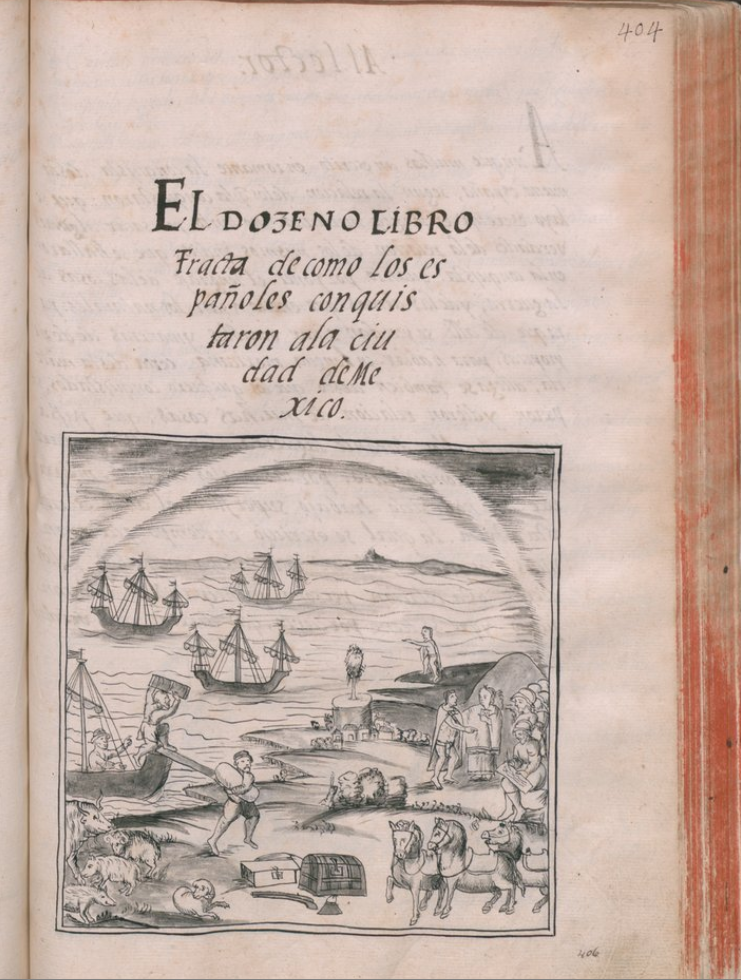 404
EL DOZENO LIBRO
Tracta de como los es
pañoles conquis
taron ala ciu
dad de Me
xico.
406